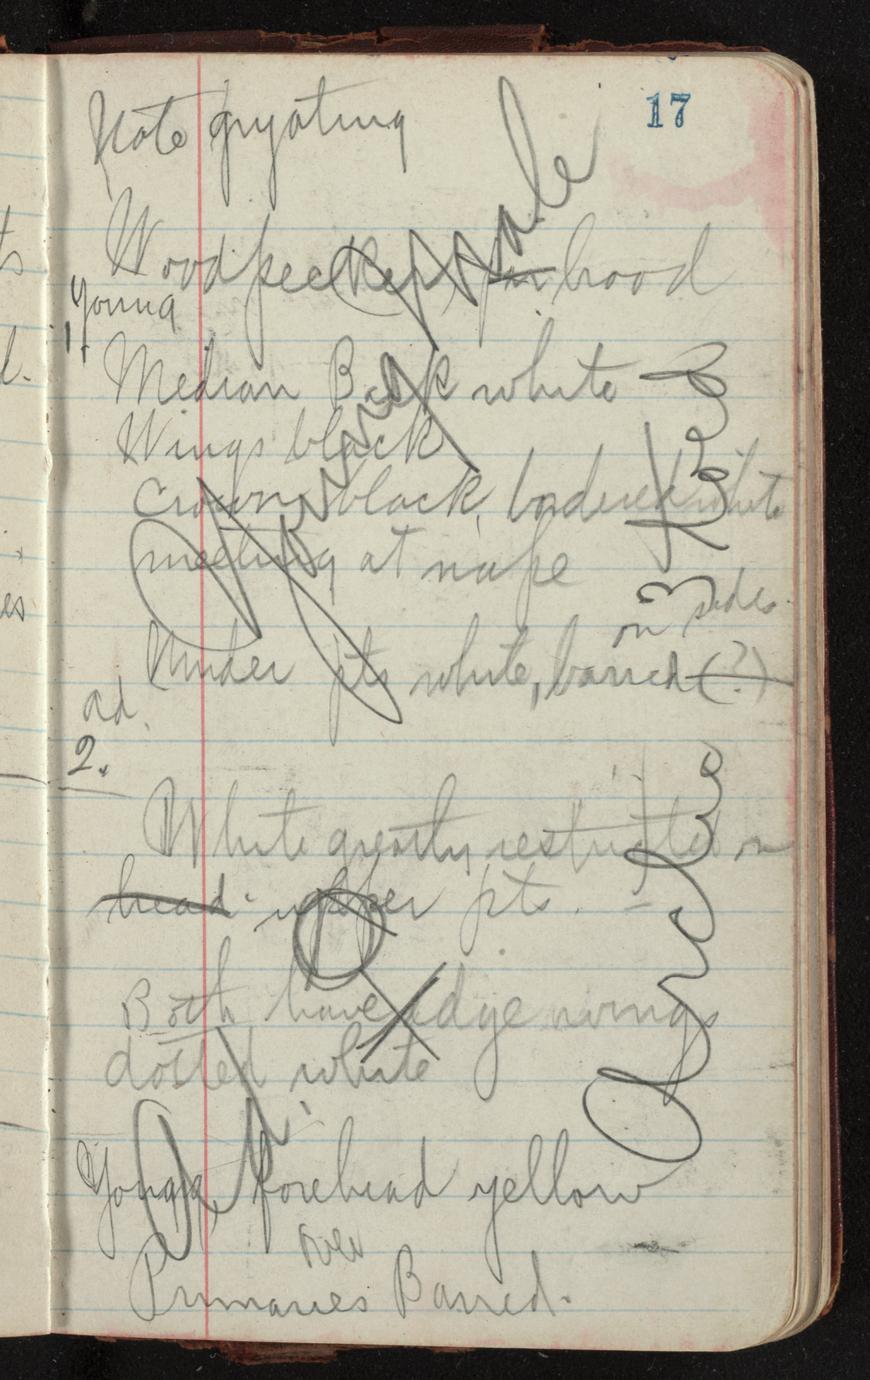 17
Note gyrating
Woodpecker, for brood
Young
1.
Median Back white
Wings black
Crown black, bordered white
meeting at nape
on sides.
Under pts white, barred (?)
ad.
2.
White greatly restricted on
head. upper pts.
Both have edge wings
dotted white
Young, forehead yellow
over
Primaries Barred.
Young Male
Arctic 3 toed
Ad. ♀